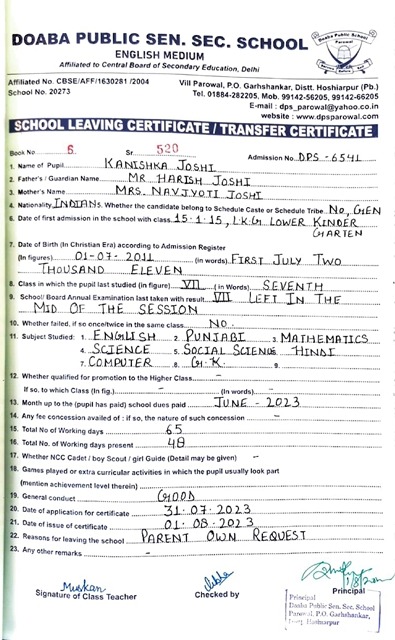 DOABA PUBLIC SEN. SEC. SCHOOL
ENGLISH MEDIUM
Affiliated to Central Board of Secondary Education, Delhi
Doaba Public School
Parowal
Affiliated No. CBSE/AFF/1630281 /2004
School No. 20273
Vill Parowal, P.O. Garhshankar, Distt. Hoshiarpur (Pb.)
Tel. 01884-282205, Mob. 99142-56205, 99142-66205
E-mail : dps_parowal@yahoo.co.in
website : www.dpsparowal.com
SCHOOL LEAVING CERTIFICATE / TRANSFER CERTIFICATE
Book No 6. Sr. 520 Admission No. DPS-6541
1. Name of Pupil KANISHKA JOSHI
2. Father's / Guardian Name MR HARISH JOSHI
3. Mother's Name MRS. NAVJYOTI JOSHI
4. Nationality INDIANS. Whether the candidate belong to Schedule Caste or Schedule Tribe NO, GEN
6. Date of first admission in the school with class. 15.1.15, L.K.G LOWER KINDER
GARTEN
7. Date of Birth (In Christian Era) according to Admission Register
(In figures) 01-07-2011 (in words) FIRST JULY TWO
THOUSAND ELEVEN
8. Class in which the pupil last studied (in figure) VII (in Words) SEVENTH
9. School/ Board Annual Examination last taken with result VII LEFT IN THE
MID OF THE SESSION
10. Whether failed, if so once/twice in the same class NO.
11. Subject Studied: 1. ENGLISH 2. PUNJABI 3. MATHEMATICS
4. SCIENCE 5. SOCIAL SCIENCE HINDI
7. COMPUTER 8. G.K. 9.
12. Whether qualified for promotion to the Higher Class -
If so, to which Class (In fig.) - (In words) -
13. Month up to the (pupil has paid) school dues paid JUNE - 2023
14. Any fee concession availed of : if so, the nature of such concession -
15. Total No of Working days 65
16. Total No. of Working days present 48
17. Whether NCC Cadet / boy Scout / girl Guide (Detail may be given) -
18. Games played or extra curricular activities in which the pupil usually look part
(mention achievement level therein)
19. General conduct GOOD
20. Date of application for certificate 31.07.2023
21. Date of issue of certificate 01.08.2023
22. Reasons for leaving the school PARENT OWN REQUEST
23. Any other remarks -
Muskan
Signature of Class Teacher
Checked by
Principal
Principal
Doaba Public Sen. Sec. School
Parowal, P.O. Garhshankar,
Distt. Hoshiarpur